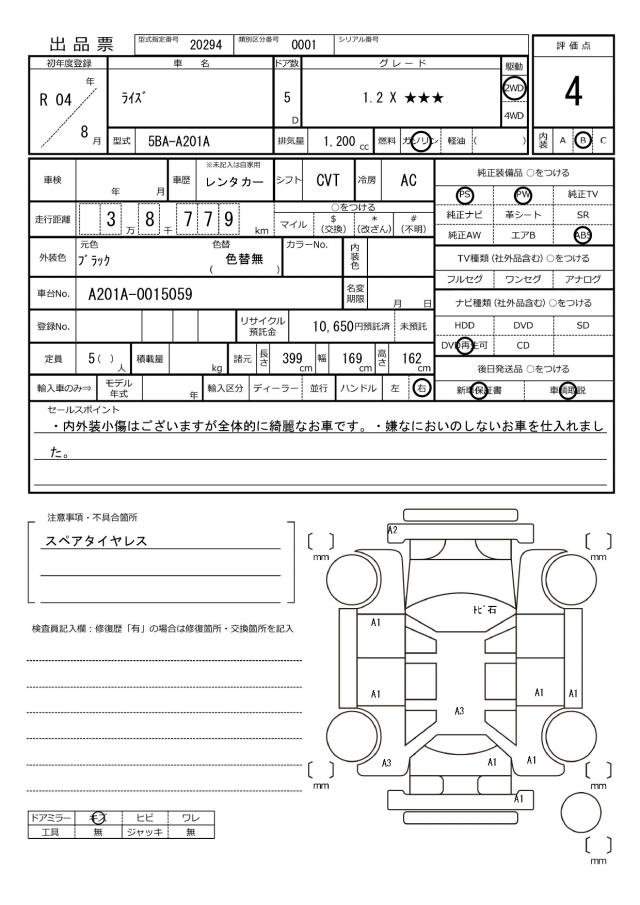 出品票 型式指定番号 20294 類別区分番号 0001 シリアル番号
評価点
4
初年度登録 車名 ドア数 グレード 駆動
R 04 年 8 月
ライズ
5 D
1.2 X ★★★
2WD
4WD
型式 5BA-A201A 排気量 1,200 cc 燃料 ガソリン 軽油 ( )
内装 A B C
車検 年 月 車歴 ※未記入は自家用 レンタカー シフト CVT 冷房 AC
走行距離 3 万 8 千 7 7 9 km
○をつける
マイル $ (交換) * (改ざん) # (不明)
外装色 元色 ブラック 色替 ( 色替無 ) カラーNo. 内装色
車台No. A201A-0015059 名変期限 月 日
登録No. リサイクル預託金 10,650円預託済 未預託
定員 5( ) 人 積載量 kg 諸元 長さ 399 cm 幅 169 cm 高さ 162 cm
輸入車のみ⇒ モデル年式 年 輸入区分 ディーラー 並行 ハンドル 左 右
純正装備品 ○をつける
PS PW 純正TV
純正ナビ 革シート SR
純正AW エアB ABS
TV種類 (社外品含む) ○をつける
フルセグ ワンセグ アナログ
ナビ種類 (社外品含む) ○をつける
HDD DVD SD
DVD再生可 CD
後日発送品 ○をつける
新車保証書 車輌取説
セールスポイント
・内外装小傷はございますが全体的に綺麗なお車です。・嫌なにおいのしないお車を仕入れまし
た。
注意事項・不具合箇所
スペアタイヤレス
検査員記入欄：修復歴「有」の場合は修復箇所・交換箇所を記入
ドアミラー キズ ヒビ ワレ
工具 無 ジャッキ 無
A2
mm
mm
トビ石
A1
A1
A1
A1
A3
A3
A1
A1
mm
mm
A1
mm